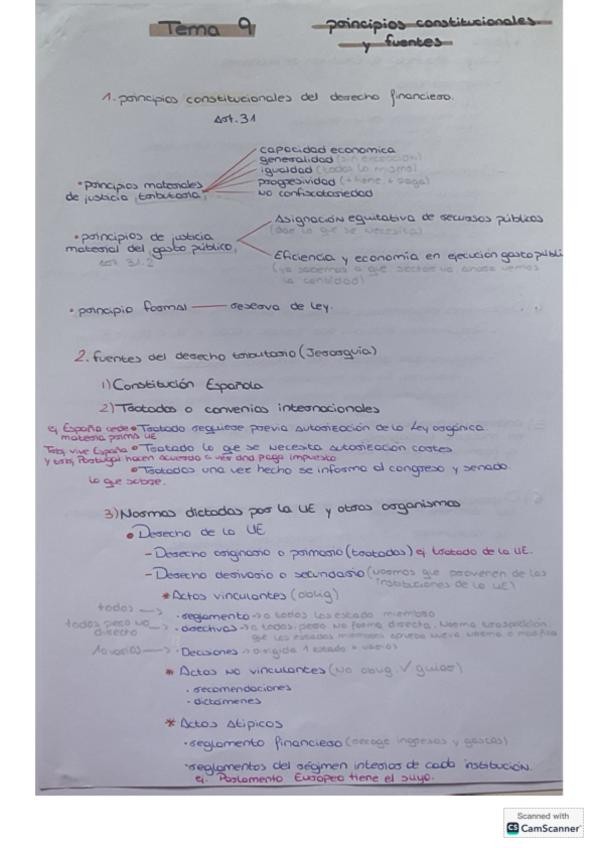 Tema 9
principios constitucionales
y fuentes
1. principios constitucionales del derecho financiero.
Art. 31
• principios materiales
de justicia tributaria
capacidad economica
generalidad (sin excepción)
igualdad (todos lo mismo)
progresividad (+ tiene + paga)
no confiscatoriedad
• principios de justicia
material del gasto público.
art 31.2
Asignación equitativa de recursos públicos
(dar lo que se necesita)
Eficiencia y economía en ejecución gasto públi
(ya sabemos a que sector va ahora vemos
la cantidad)
• principio formal — reserva de ley.
2. fuentes del derecho tributario (Jerarquía)
1) Constitución Española
2) Tratados o convenios internacionales
ej España cede • Tratado requiere previa autorización de la Ley orgánica.
materia prima UE
vive España • Tratado lo que se necesita autorización cortes
Portugal hacen acuerdo a ver dnd paga impuesto
• Tratados una vez hecho se informa al congreso y senado.
lo que sobre.
3) Normas dictadas por la UE y otros organismos
• Derecho de la UE
- Derecho originario o primario (tratados) ej tratado de la UE.
- Derecho derivario o secundario (normas que provienen de las
instituciones de la UE)
* Actos vinculantes (oblig)
todos → · reglamento → a todos los estado miembro
todos pero no directo → · directivas → a todos, pero no forma directa. Norma transposición
que los estados miembros aprueba nueva norma o modifica
1 o varios → · Decisiones → dirigida 1 estado o varios
* Actos no vinculantes (no oblig. / guiar)
· recomendaciones
· dictámenes
* Actos atipicos
· reglamento financiero (recoge ingresos y gastos)
· reglamentos del régimen interios de cada institución.
ej. Parlamento Europeo tiene el suyo.
Scanned with
CS CamScanner